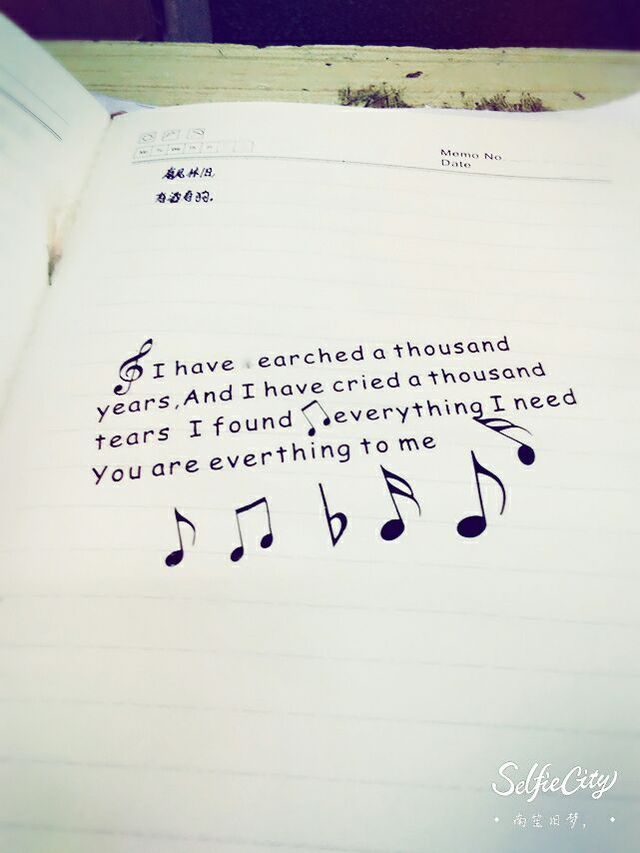 Memo No.
Date
I have earched a thousand
years,And I have cried a thousand
tears I found everything I need
You are everthing to me
SelfieCity
南笙旧梦,